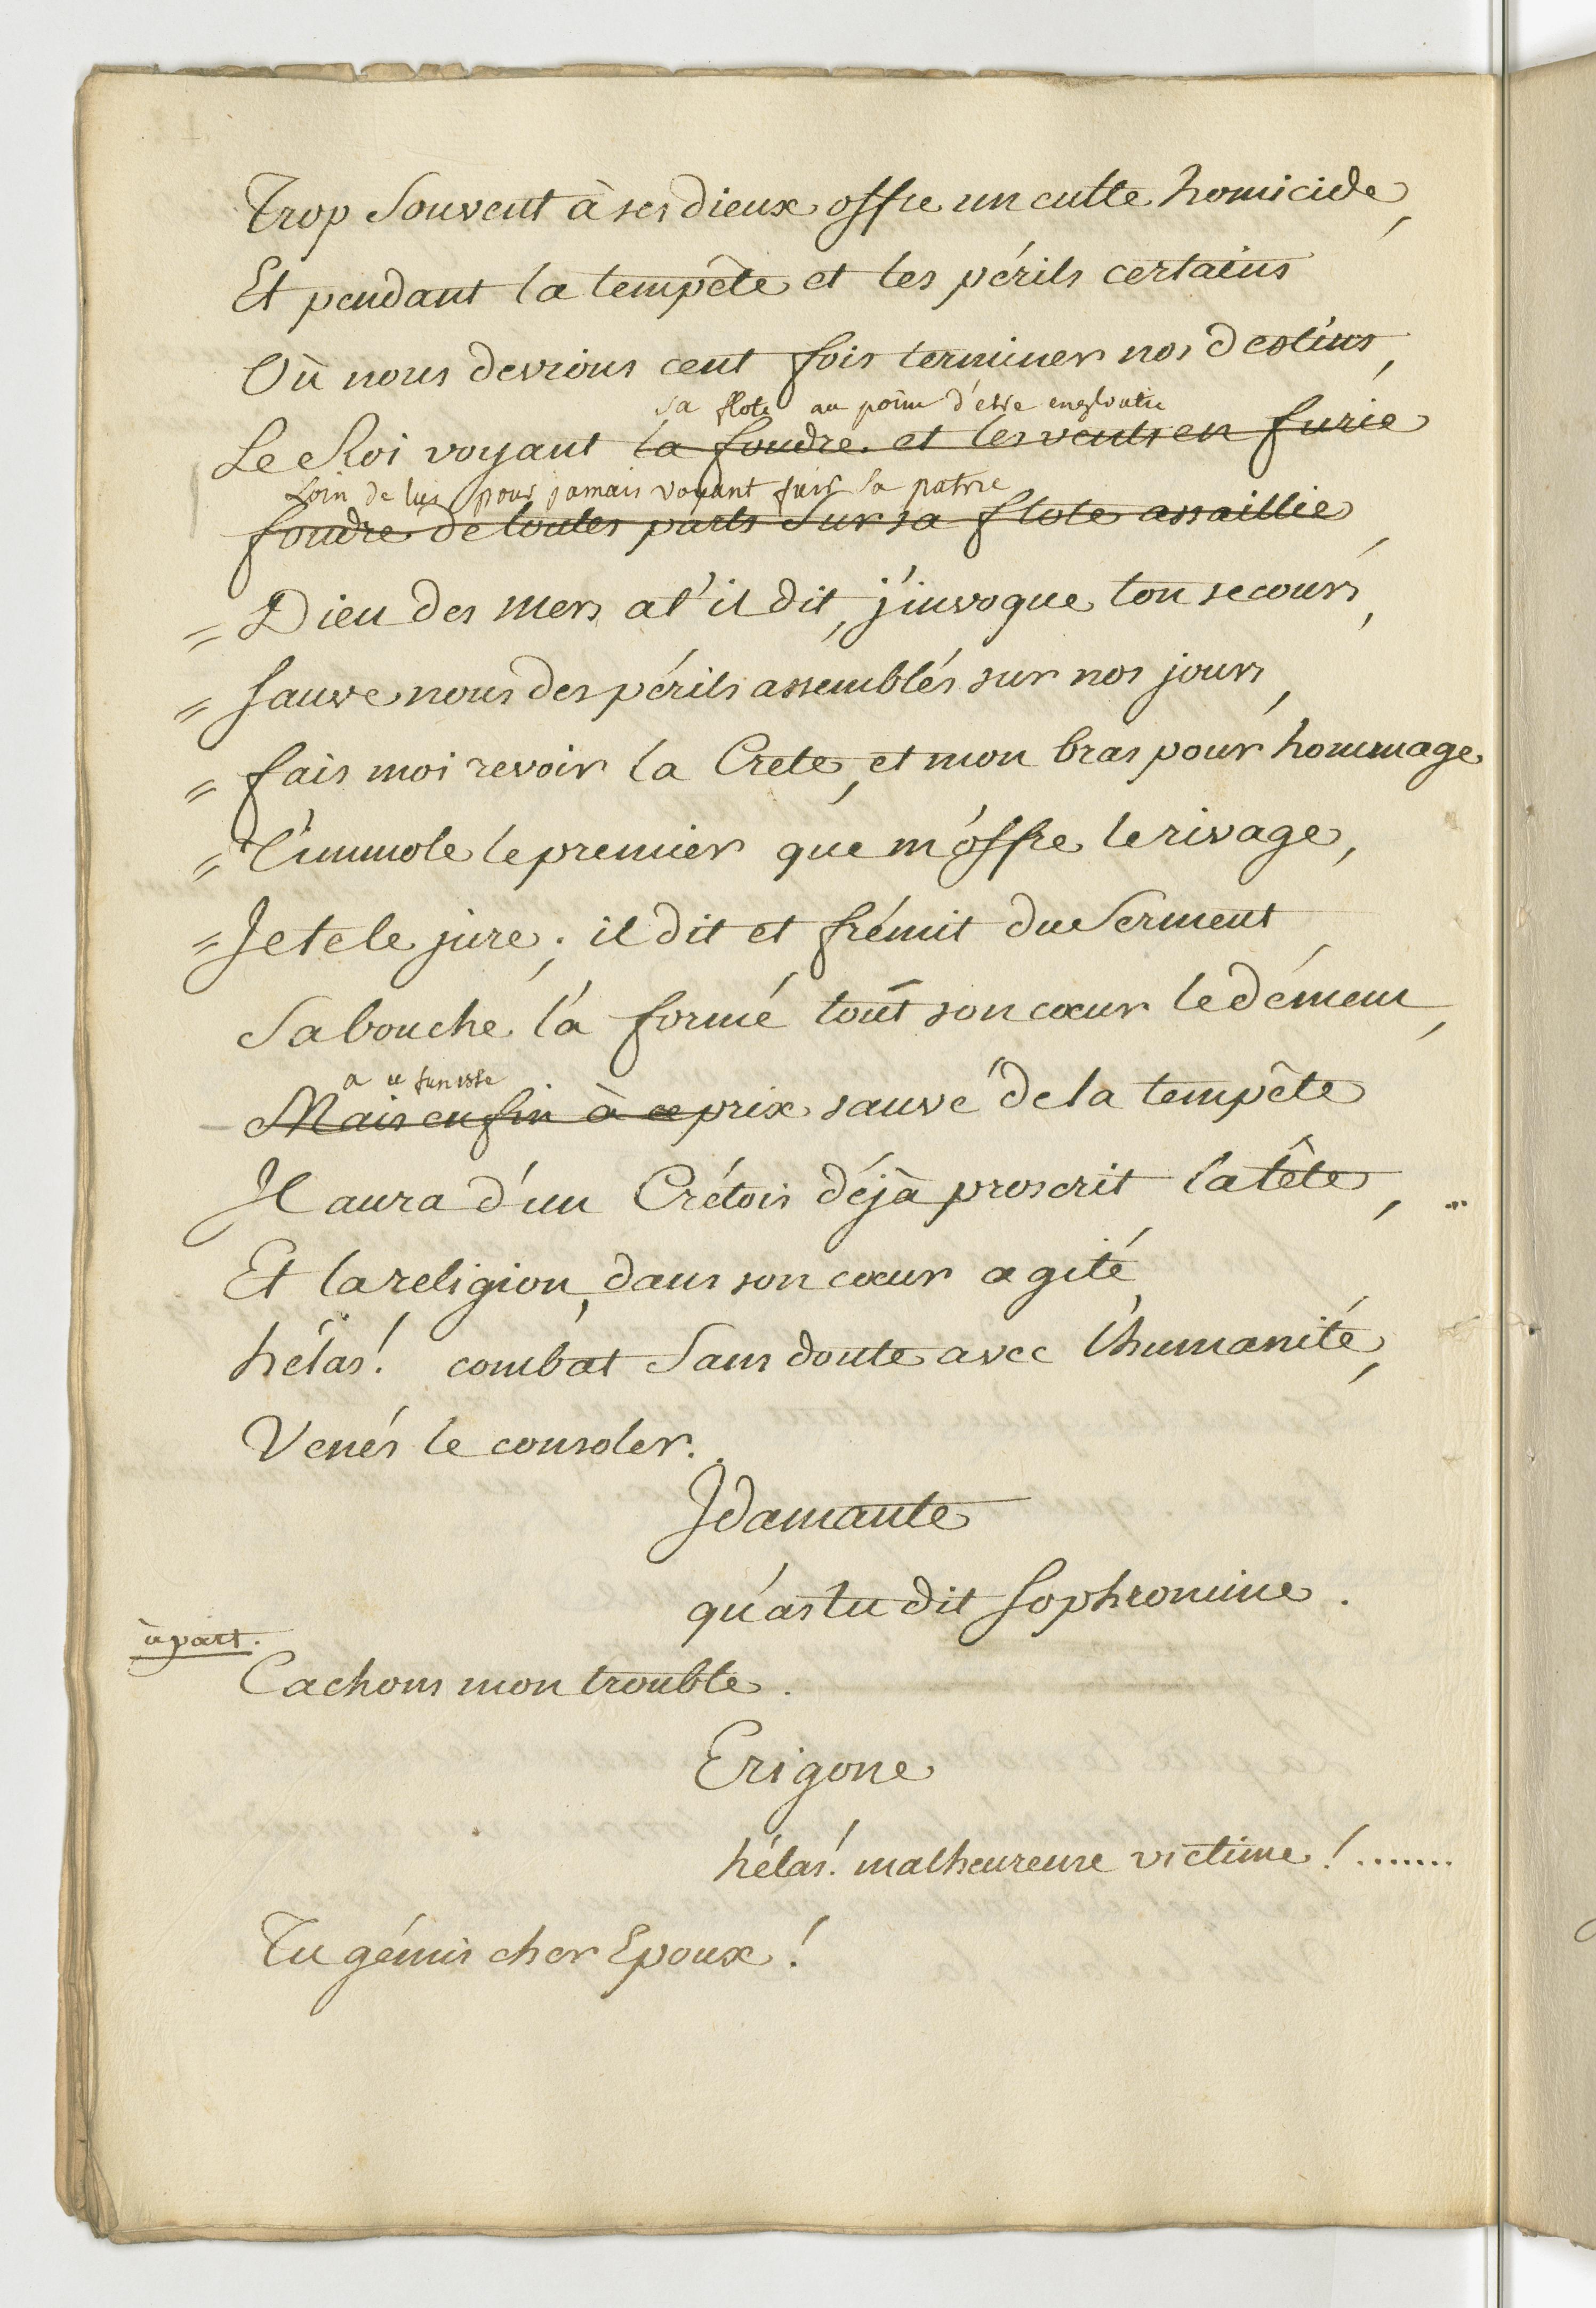 Trop Souvent à ses dieux offre un culte homicide,
Et pendant la tempête et les périls certains
Où nous devrions cent fois terminer nos destins,
sa flote au point d'etre engloutie
Le Roi voyant la foudre. et les vents en furie
Loin de lui pour jamais voyant fuir sa patrie
foudre de toutes parts Sur sa flote assaillie,
= Dieu des mers at'il dit, j'invoque ton secours,
= Sauve nous des périls assemblés sur nos jours,
= fais moi revoir la Crete, et mon bras pour hommage
= T'immole le premier que m'offre le rivage,
= Je te le jure; il dit et frémit du Serment,
Sa bouche l'a formé tout son cœur le dément,
a ce funeste
Mais enfin à ce prix sauvé de la tempête
Il aura d'un Crétois déjà proscrit la tête,
Et la religion, dans son cœur agité,
hélas! combat Sans doute avec l'humanité,
Venés le consoler.
Idamante
qu'as tu dit Sophronime.
à part.
Cachons mon trouble.
Erigone
hélas! malheureuse victime! .......
Tu gémis cher Epoux!